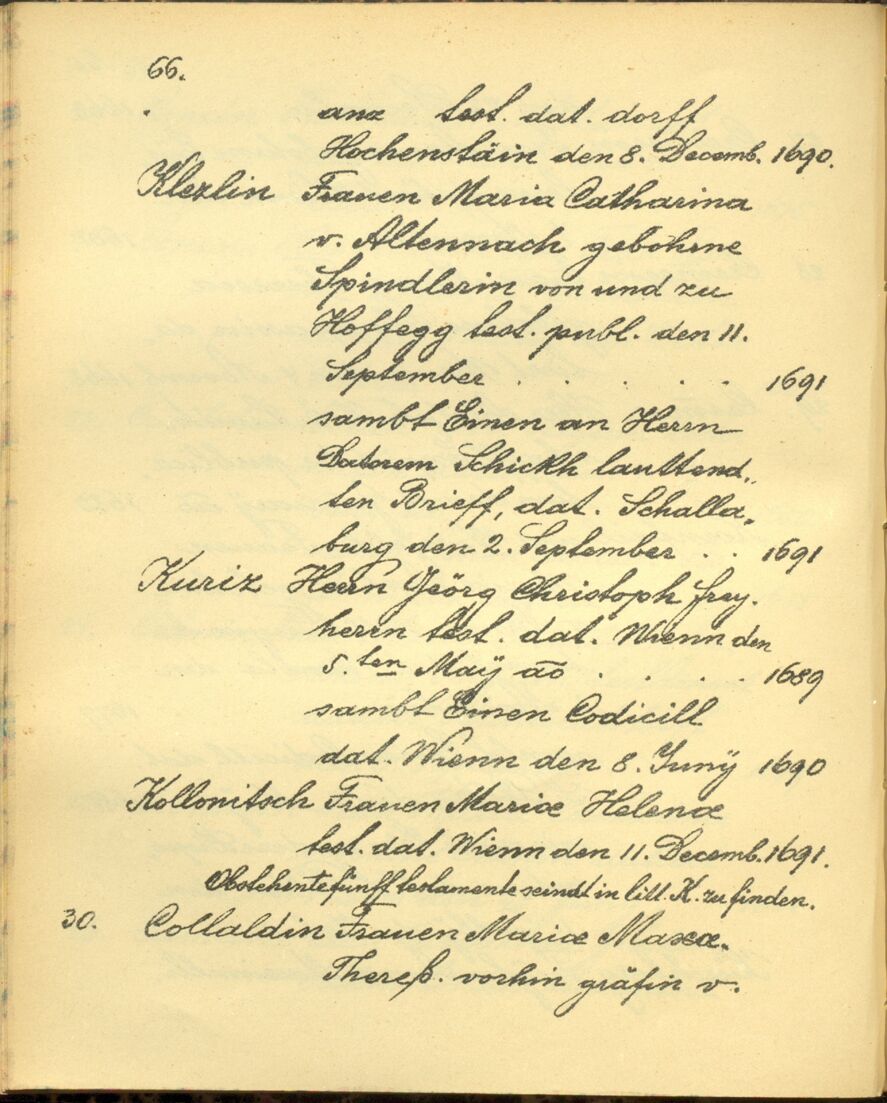 66.
anz test. dat. dorff
Hochenstäin den 8. Decemb. 1690.
Klezlin Frauen Maria Catharina
v. Altennach gebohrne
Spindlerin von und zu
Hoffegg test. publ. den 11.
September . . . . . 1691
sambt Einen an Herrn
Datorem Schickh lauttend„
ten Brieff, dat. Schalla„
burg den 2. September . . 1691
Kuriz Herrn Geörg Christoph frey.
herrn test. dat. Wienn den
5.ten Maÿ ao . . . . 1689
sambt Einen Codicill
dat. Wienn den 8. Junÿ 1690
Kollonitsch Frauen Mariæ Helenæ
test. dat. Wienn den 11. Decemb. 1691.
Obstehente fünff testamente seindt in litt. K. zu finden.
30. Collaldin Frauen Mariæ Maxæ„
Thereß. vorhin gräfin v.